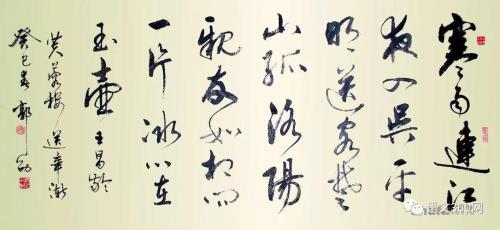 寒雨連江
夜入吴平
明送客楚
山孤洛陽
親友如相问
一片冰心在
玉壶 王昌龄
芙蓉楼送辛渐
癸巳春 郭